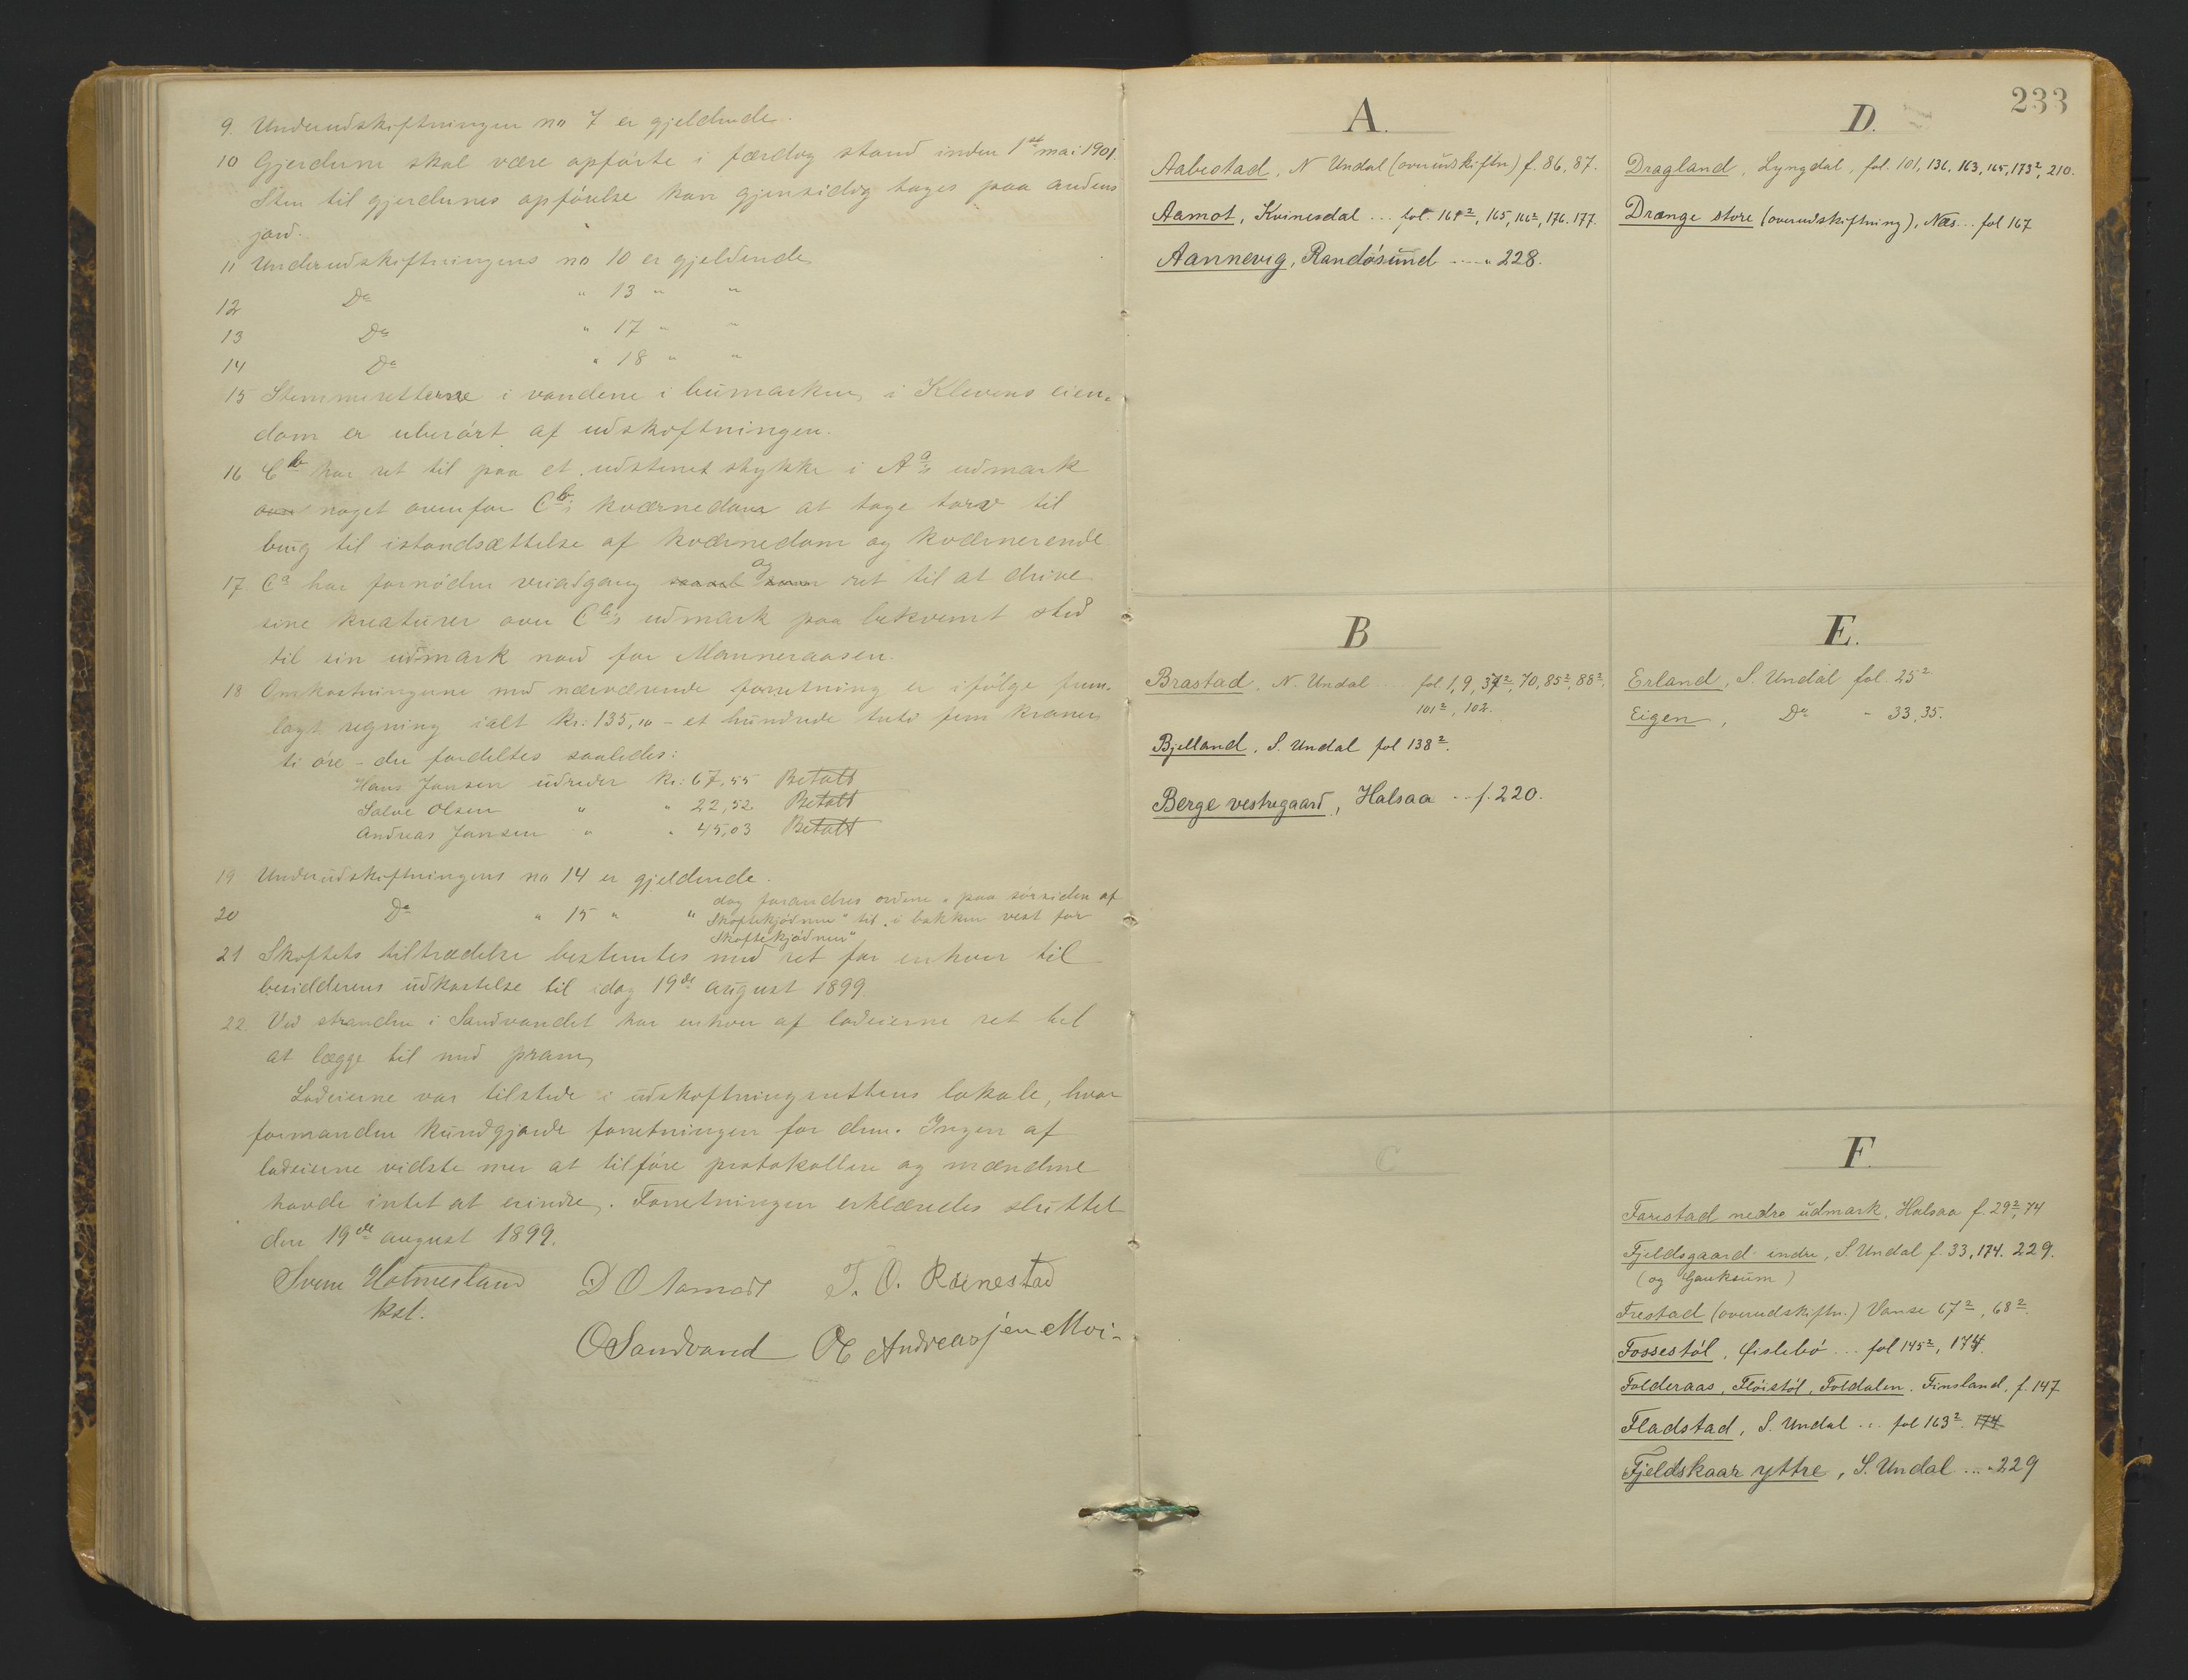 9. Underudskiftningen no 7 er gjeldende.
10 Gjerderne skal være opførte i færdig stand inden 1ste mai 1901.
Sten til gjerdernes opførelse kan gjensidig tages paa andens
jord.
11 Underudskiftningens no 10 er gjeldende
12 Do " 13 " "
13 Do " 17 " "
14 Do " 18 " "
15 Stemmeretterne i vandene i heimarken i Klevens eien-
dom er uberørt af udskiftningen.
16 Cb har ret til paa et udstenet stykke i Aa's udmark
noget ovenfor Cb's kværnedam at tage torv til
brug til istandsættelse af kværnedam og kværnerende
17 Ca har fornøden veiadgang og ret til at drive
sine kreaturer over Cb's udmark paa bekvemt sted
til sin udmark nord for Manneraasen.
18 Omkostningerne med nærværende forretning er ifølge frem-
lagt regning ialt kr. 135,10 - et hundrede treti fem kroner
ti øre - der fordeltes saaledes:
Hans Jansen udreder kr. 67,55 Betalt
Salve Olsen " " 22,52 Betalt
Andreas Jansen " " 45,03 Betalt
19 Underudskiftningens no 14 er gjeldende.
20 Do " 15 " " dog forandres ordene "paa sørsiden af
Skoftekjødnen" til "i bakken vest for
Skoftekjødnen"
21 Skiftets tiltrædelse bestemtes med ret for enhver til
besidderens udkastelse til idag 19de august 1899
22. Ved stranden i Sandvandet har enhver af lodeierne ret til
at lægge til med pram,
Lodeierne var tilstede i udskiftningsrettens lokale, hvor
formanden kundgjorde forretningen for dem. Ingen af
lodeierne vidste mer at tilføre protokollen og mændene
havde intet at erindre. Forretningen erklæredes sluttet
den 19de august 1899.
Sven Holmesland D O Aamodt T. O. Reinestad
kst.
O Sandvand O Andreasjen Moi-
233
A.
Aabestad, N Undal (overudskiftn) f. 86, 87.
Aamot, Kvinesdal ... fol. 164 2, 165, 166 2, 176. 177.
Aannevig, Randøsund .... " 228.
B
Brastad, N. Undal ... fol. 1, 9, 37 2, 70, 85 2, 88 2,
101 2, 102.
Bjelland, S. Undal fol 138 2.
Berge vestregaard, Halsaa ... f. 220.
C
D.
Dragland, Lyngdal, fol. 101, 136, 163, 165, 173 2, 210.
Drange store (overudskiftning), Næs ... fol 167
E.
Erland, S. Undal fol. 25 2
Eigen, Do " 33, 35.
F.
Farestad nedre udmark, Halsaa f. 29 2, 74
Fjeldsgaard indre, S. Undal f. 33, 174. 229.
(og Gauksum)
Frestad (overudskiftn.) Vanse 67 2, 68 2.
Fossestøl, Øislebø ... fol 145 2, 174.
Folderaas, Fløistøl, Foldalen. Finsland, f. 147
Fladstad, S. Undal ... fol 163 2. 174
Fjeldskaar yttre, S. Undal .... " 229